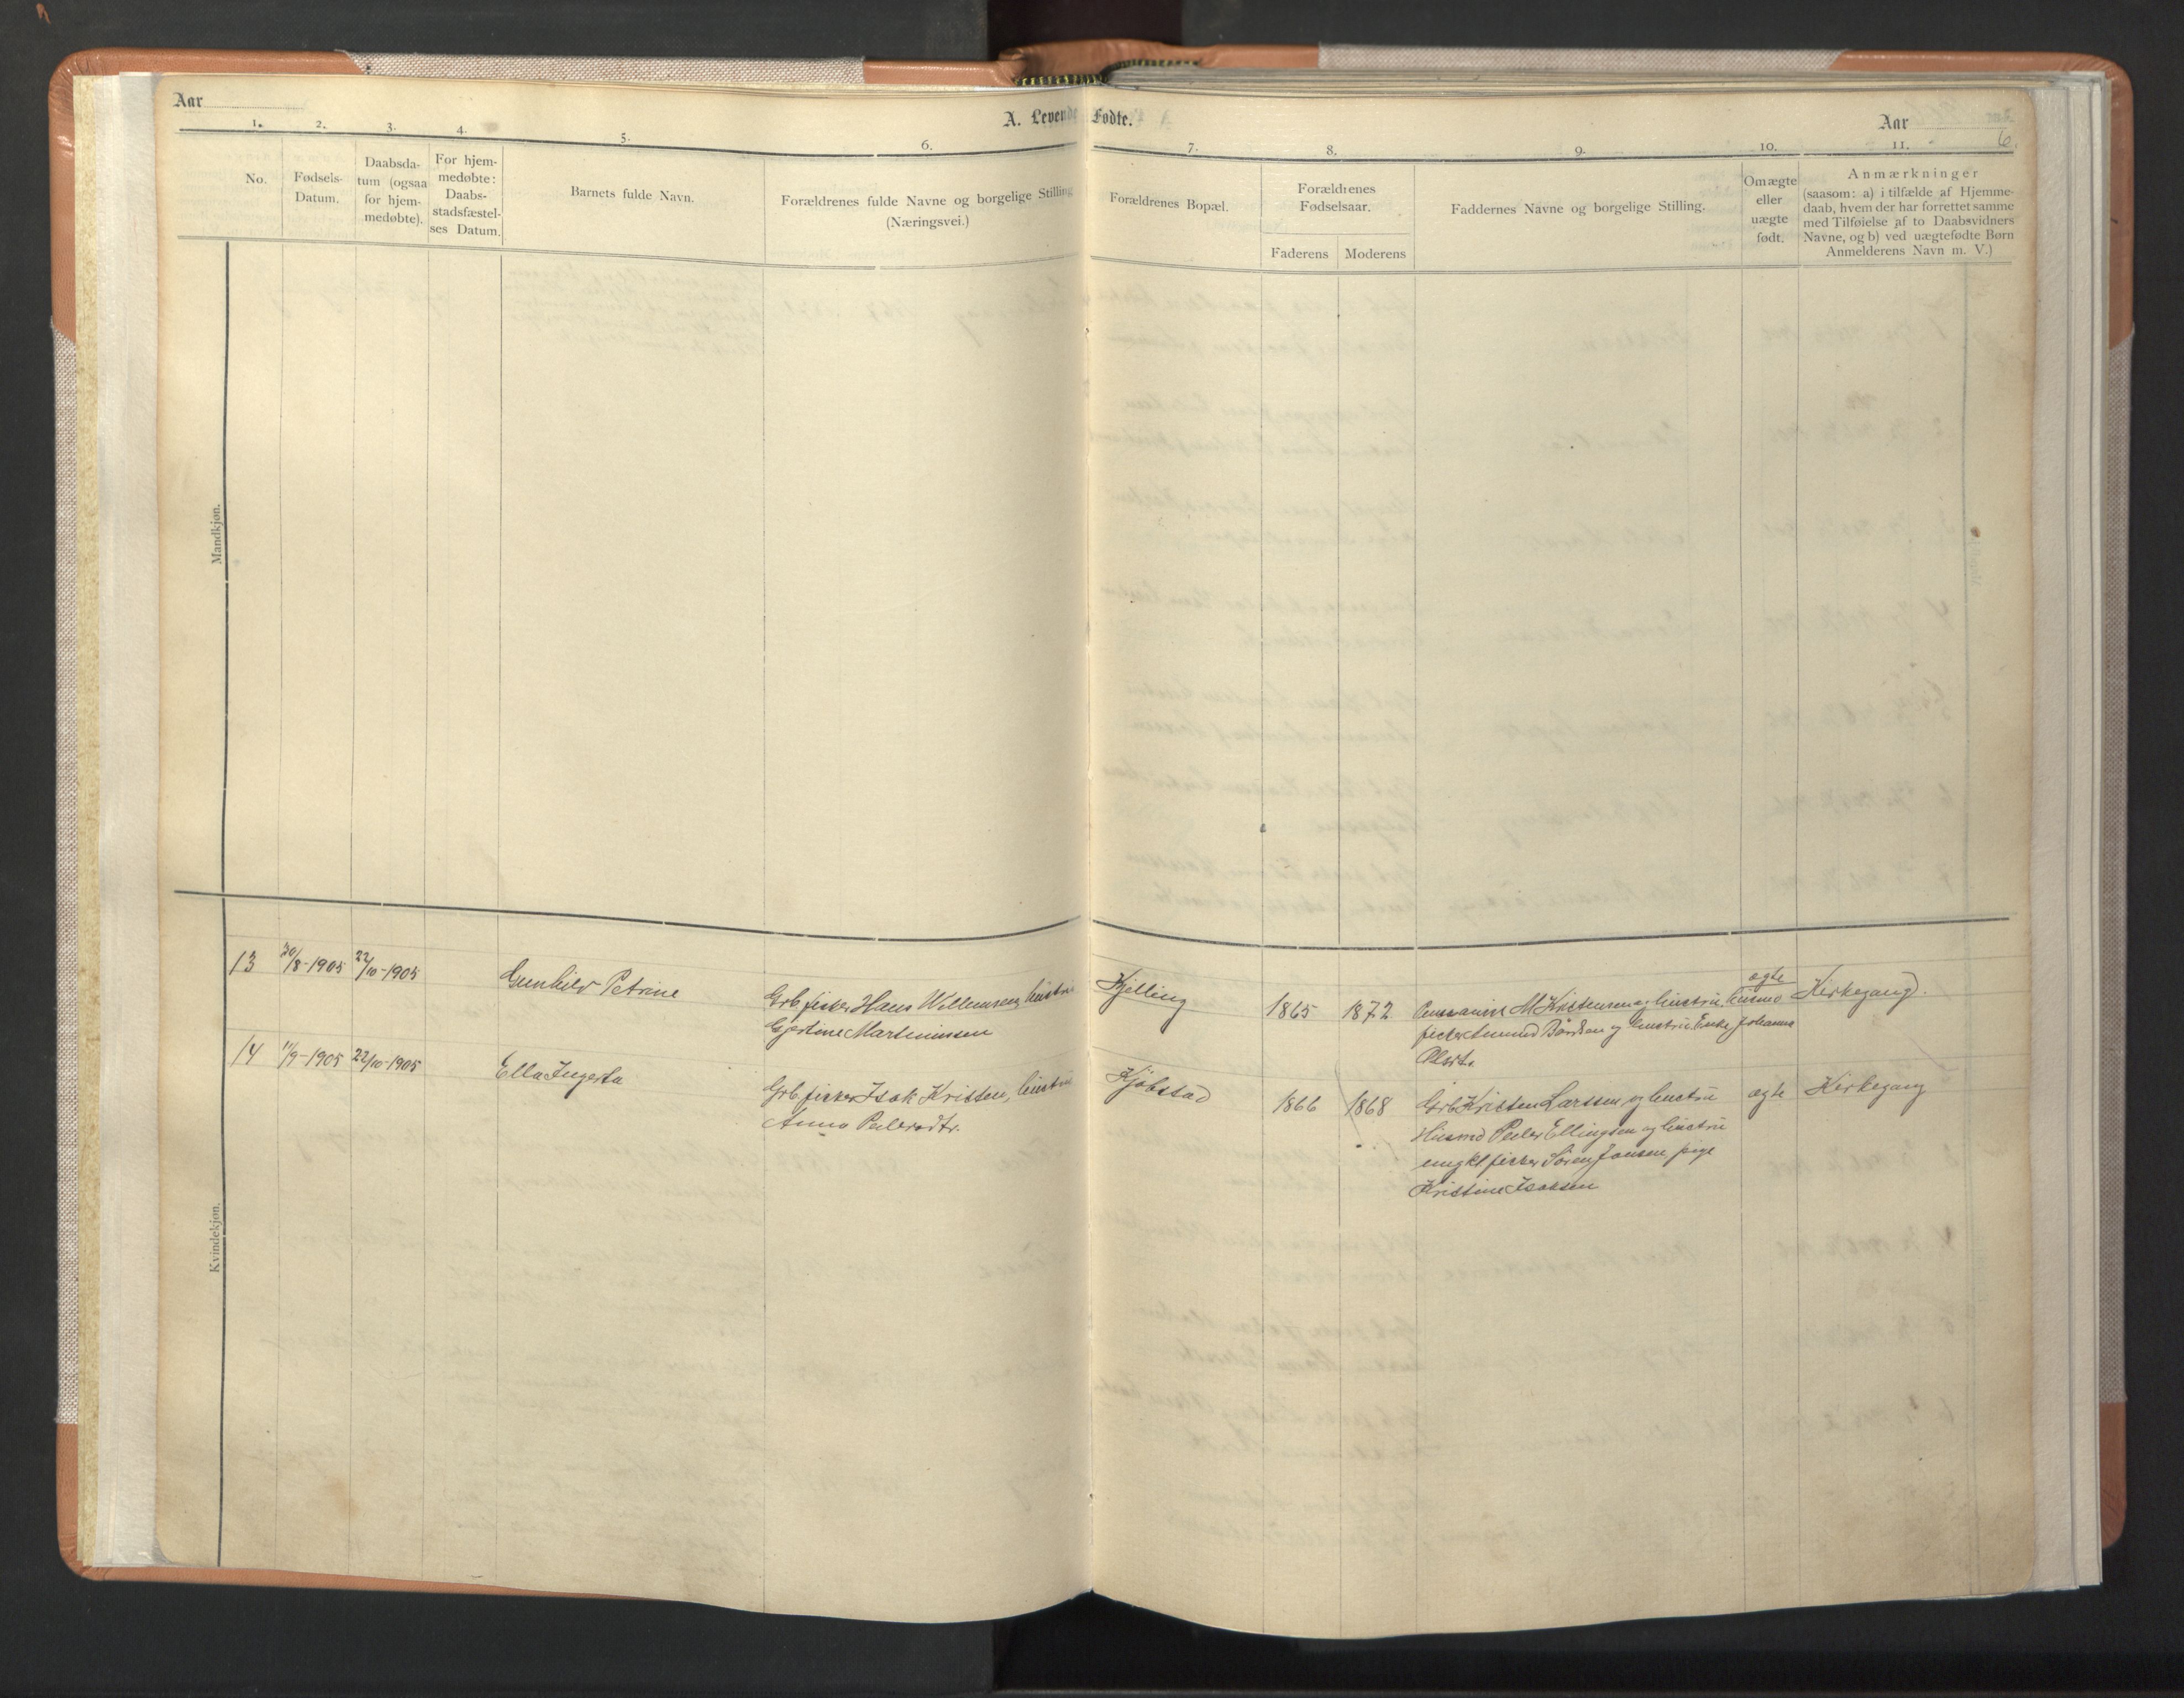 Aar
A. Levende Fødte.
Aar
6.
1. 2. 3. 4. 5. 6. 7. 8. 9. 10. 11.
No.
Fødsels-
Datum.
Daabsda-
tum (ogsaa
for hjem-
medøbte).
For hjem-
medøbte:
Daabs-
stadsfæstel-
ses Datum.
Barnets fulde Navn.
Forældrenes fulde Navne og borgelige Stilling
(Næringsvei.)
Forældrenes Bopæl.
Forældrenes
Fødselsaar.
Faderens Moderens
Faddernes Navne og borgelige Stilling.
Omægte
eller
uægte
født.
Anmærkninger
(saasom: a) i tilfælde af Hjemme-
daab, hvem der har forrettet samme
med Tilføielse af to Daabsvidners
Navne, og b) ved uægtefødte Børn
Anmelderens Navn m. V.)
Mandkjøn.
Kvindekjøn.
13 30/8-1905 22/10-1905
Gunhild Petrine
Grb fisker Hans Willumsen, hustru
Gjertine Martinussen
Kjelling
1865 1872
M Kristensen og hustru, husmd
fisker Amund Bårdsen og hustru Enke Johanna
Olsdtr.
ægte
Kirkegang.
14 11/9-1905 22/10-1905
Ella Ingerta
Grb fisker Isak Kristen, hustru
Anna Pedersdtr.
Kjøbstad
1866 1868
Grb Kristen Larssen og hustru
Husmd Peder Ellingsen og hustru
ungkl fisker Sören Jansen, pige
Kristine Isaksen
ægte
Kirkegang